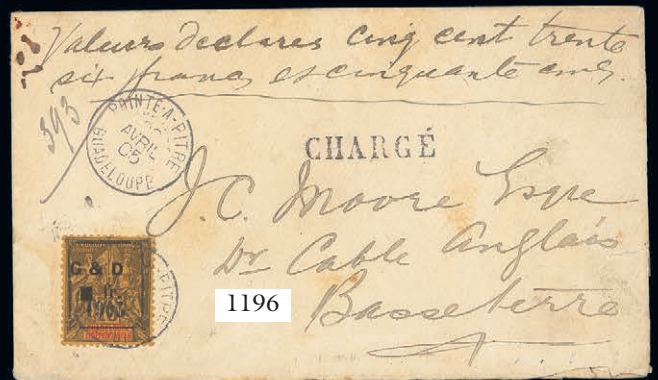 Valeurs declares cinq cent trente
six francs et cinquante cms.
393
POINTE-A-PITRE
AVRIL
05
GUADELOUPE
CHARGÉ
J. C. Moore Esqre
Dr Cable Anglais
Basseterre
G & D
1903
1196